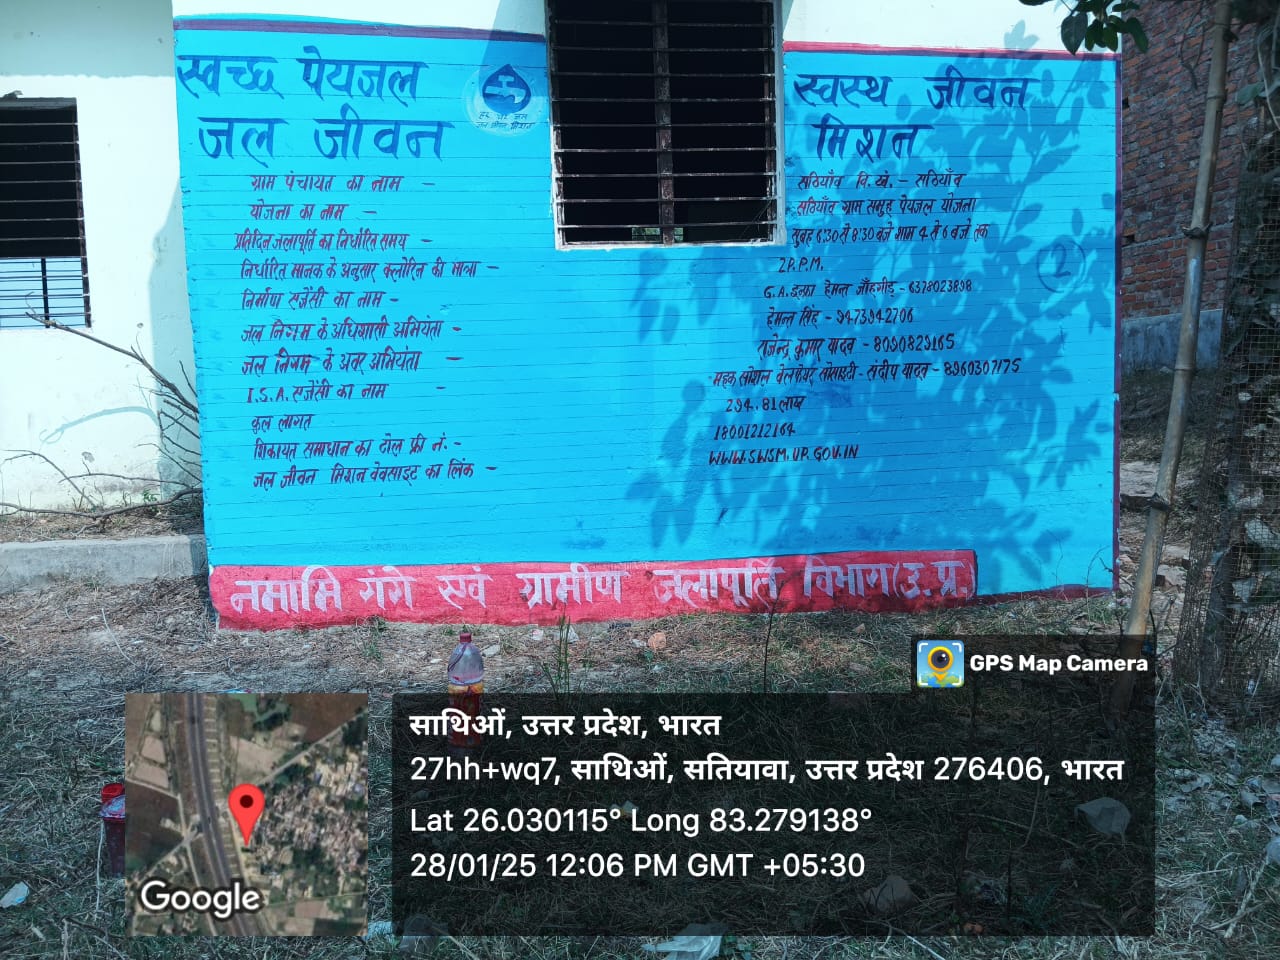 स्वच्छ पेयजल
जल जीवन
स्वस्थ जीवन
मिशन
हर घर जल
जल जीवन मिशन
ग्राम पंचायत का नाम - सठियाँव वि. खं. - सठियाँव
योजना का नाम - सठियाँव ग्राम समूह पेयजल योजना
प्रतिदिन जलापूर्ति का निर्धारित समय - सुबह 6:30 से 8:30 बजे शाम 4 से 6 बजे तक
निर्धारित मानक के अनुसार क्लोरिन की मात्रा - 2P.P.M.
निर्माण एजेंसी का नाम - G.A. इन्फ्रा हेमन्त जाँहगीड़ - 6378023898
जल निगम के अधिशासी अभियंता - हेमन्त सिंह - 9473942706
जल निगम के अवर अभियंता - राजेन्द्र कुमार यादव - 8090829165
I.S.A. एजेंसी का नाम - महक सोशल वेलफेयर सोसाइटी - संदीप यादव - 8960307175
कुल लागत 294.81 लाख
शिकायत समाधान का टोल फ्री नं. - 18001212164
जल जीवन मिशन वेबसाइट का लिंक - WWW.SWSM.UP.GOV.IN
2
नमामि गंगे एवं ग्रामीण जलापूर्ति विभाग (उ.प्र.)
GPS Map Camera
साथिओं, उत्तर प्रदेश, भारत
27hh+wq7, साथिओं, सतियावा, उत्तर प्रदेश 276406, भारत
Lat 26.030115° Long 83.279138°
28/01/25 12:06 PM GMT +05:30
Google